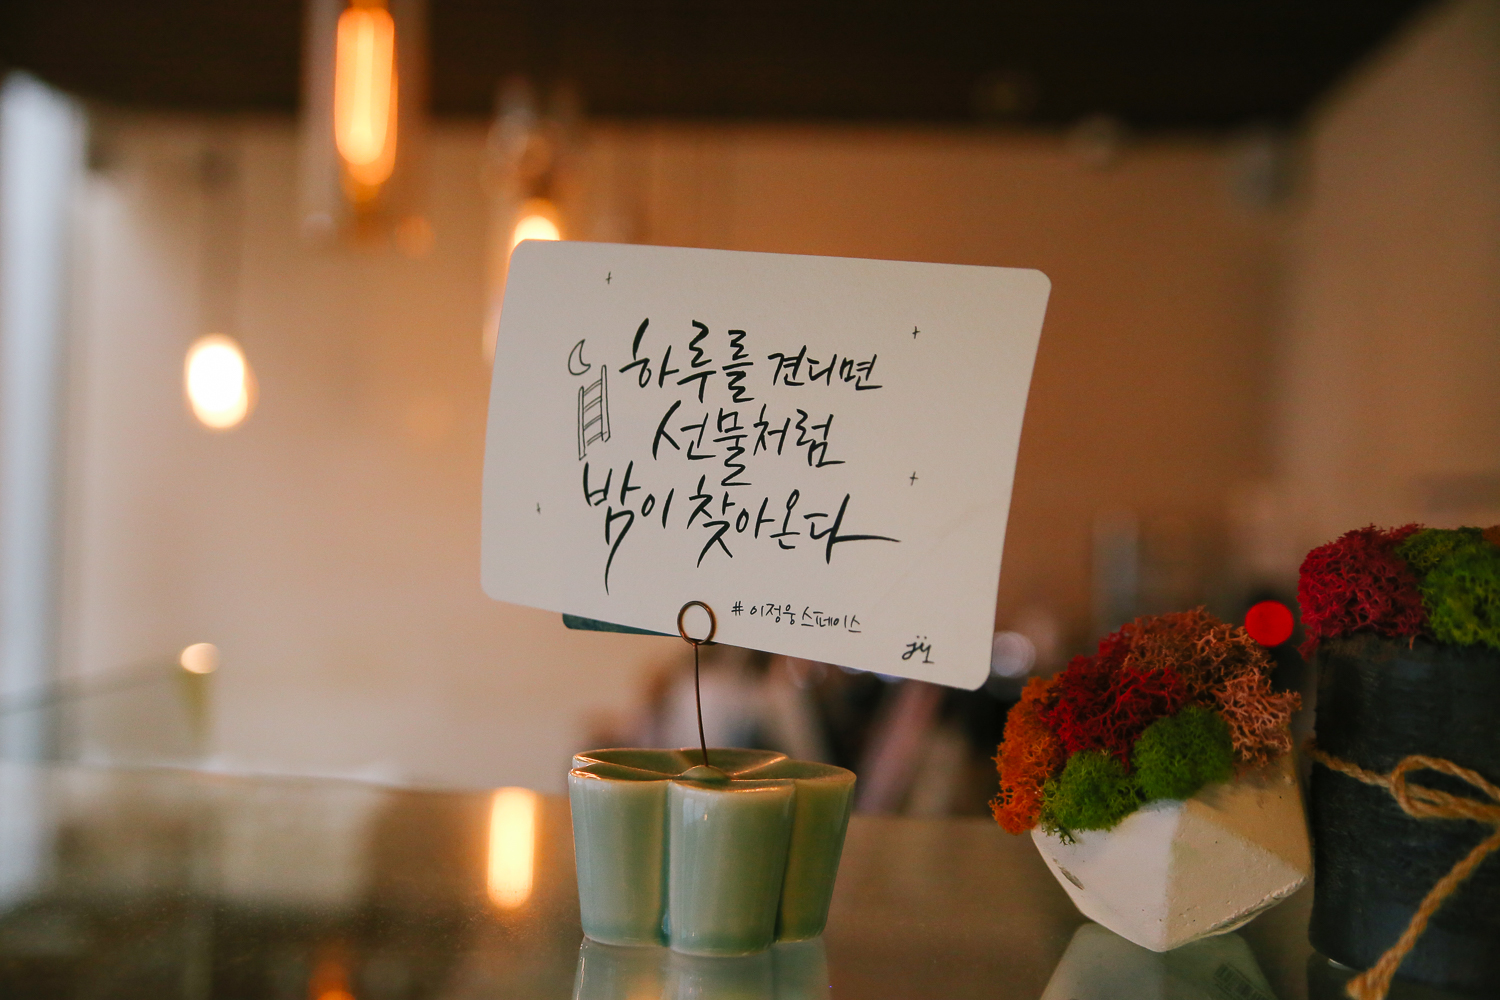 하루를 견디면
선물처럼
밤이 찾아온다
#이정웅스페이스